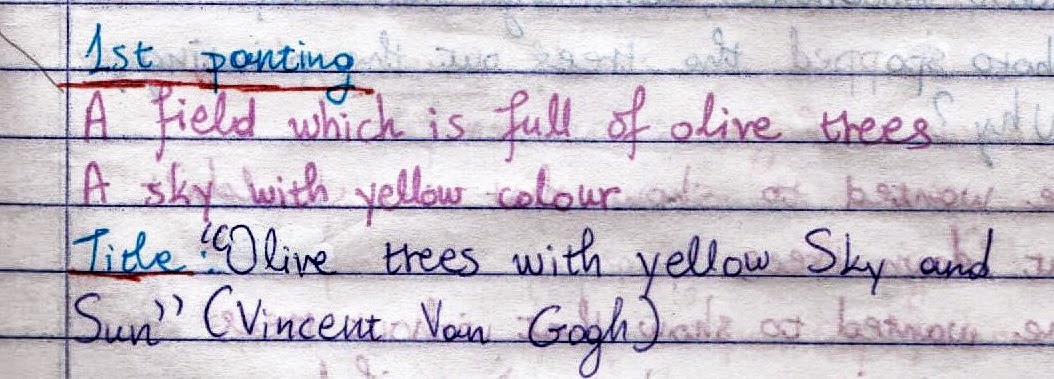 1st panting
A field which is full of olive trees
A sky with yellow colour
Title: "Olive trees with yellow Sky and
Sun" (Vincent Van Gogh)